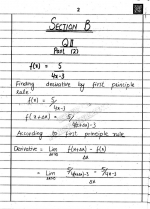 2
SECTION B
Q11
Part (2)
f(x) = 5/4x-3
Finding derivative by first principle
rule
f(x) = 5/4x-3
f(x+Δx) = 5/4(x+Δx)-3
According to first principle rule
Derivative = Lim Δx→0 f(x+Δx) - f(x) / Δx
= Lim Δx→0 5/4(x+Δx)-3 - 5/4x-3 / Δx